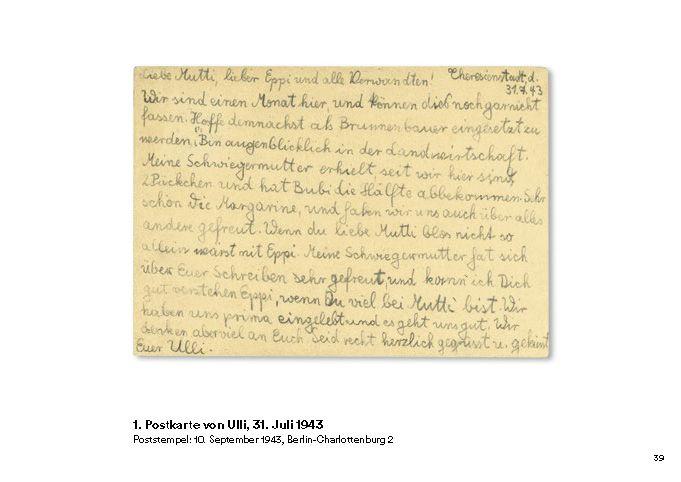 Liebe Mutti, lieber Eppi und alle Verwandten! Theresienstadt, d.
31.7.43
Wir sind einen Monat hier, und können dies noch garnicht
fassen. Hoffe demnächst als Brunnenbauer eingesetzt zu
werden, Bin augenblicklich in der Landwirtschaft.
Meine Schwiegermutter erhielt, seit wir hier sind,
2 Päckchen und hat Bubi die Hälfte abbekommen. Sehr
schön die Margarine, und haben wir uns auch über alles
andere gefreut. Wenn du liebe Mutti blos nicht so
allein wärst mit Eppi. Meine Schwiegermutter hat sich
über Euer Schreiben sehr gefreut, und kann ich Dich
gut verstehen Eppi, wenn Du viel bei Mutti bist. Wir
haben uns prima eingelebt und es geht uns gut. Wir
denken aber viel an Euch. Seid recht herzlich gegrüsst u. geküsst
Euer Ulli.
1. Postkarte von Ulli, 31. Juli 1943
Poststempel: 10. September 1943, Berlin-Charlottenburg 2
39